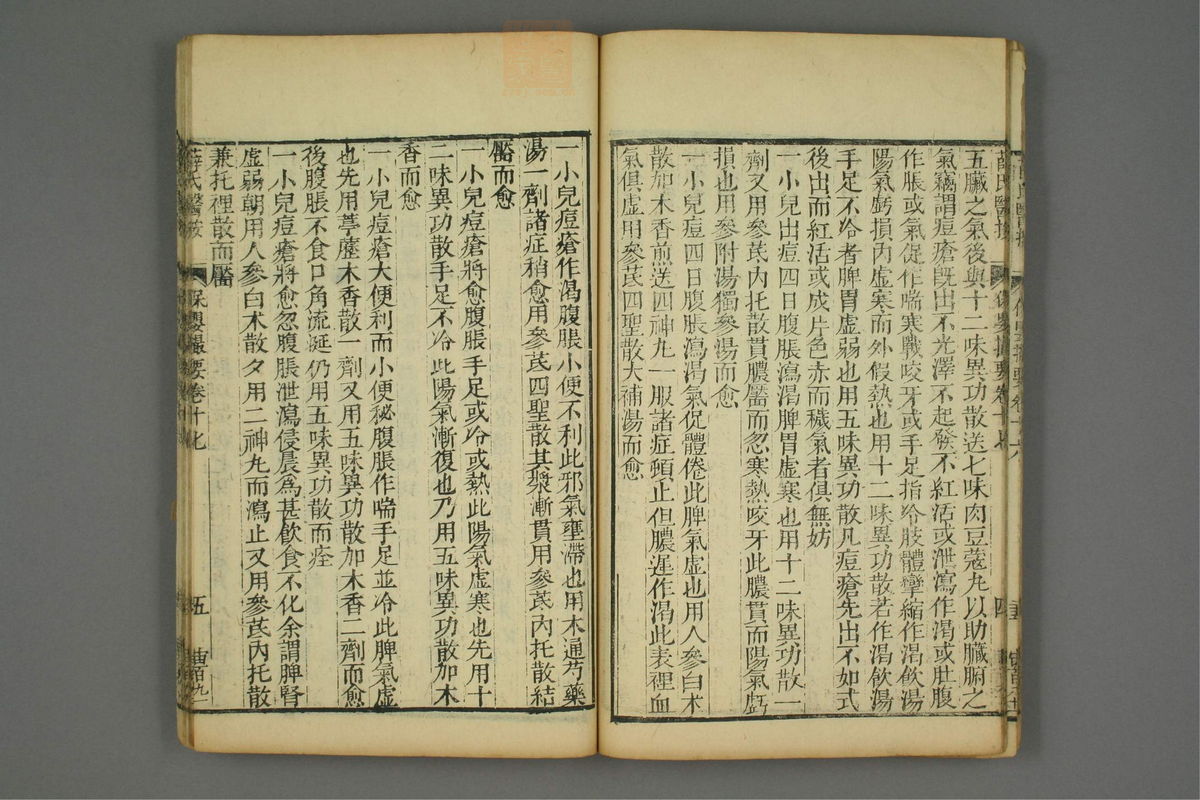 五臟之氣後與十二味異功散送七味肉豆蔻丸以助臟腑之
氣竊謂痘瘡旣出不光澤不起發不紅活或泄瀉作渴或肚腹
作脹或氣促作喘寒戰咬牙或手足指冷肢體攣縮作渴飲湯
陽氣虧損內虛寒而外假熱也用十二味異功散若作渴飲湯
手足不冷者脾胃虛弱也用五味異功散凡痘瘡先出不如式
後出而紅活或成片色赤而穢氣者俱無妨
一小兒出痘四日腹脹瀉渴脾胃虛寒也用十二味異功散一
劑又用參芪內托散貫膿靨而忽寒熱咬牙此膿貫而陽氣虧
損也用參附湯獨參湯而愈
一小兒痘四日腹脹瀉渴氣促體倦此脾氣虛也用人參白朮
散加木香煎送四神丸一服諸症頓止但膿遲作渴此表裡血
氣俱虛用參芪四聖散大補湯而愈
薛氏醫按
保嬰撮要卷十七
四
一小兒痘瘡作渴腹脹小便不利此邪氣壅滯也用木通芍藥
湯一劑諸症稍愈用參芪四聖散其漿漸貫用參芪內托散結
靨而愈
一小兒痘瘡將愈腹脹手足或冷或熱此陽氣虛寒也先用十
二味異功散手足不冷此陽氣漸復也乃用五味異功散加木
香而愈
一小兒痘瘡大便利而小便秘腹脹作喘手足並冷此脾氣虛
也先用葶藶木香散一劑又用五味異功散加木香二劑而愈
後腹脹不食口角流涎仍用五味異功散而痊
一小兒痘瘡將愈忽腹脹泄瀉侵晨為甚飲食不化余謂脾腎
虛弱朝用人參白朮散夕用二神丸而瀉止又用參芪內托散
兼托裡散而靨
薛氏醫按
保嬰撮要卷十七
五